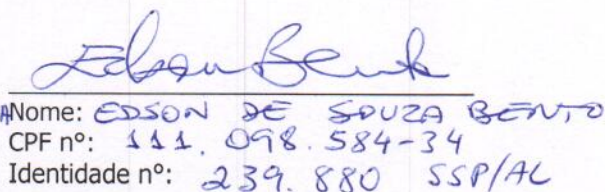 Edson Bento
Nome: EDSON DE SOUZA BENTO
CPF nº: 111.098.584-34
Identidade nº: 239.880 SSP/AL